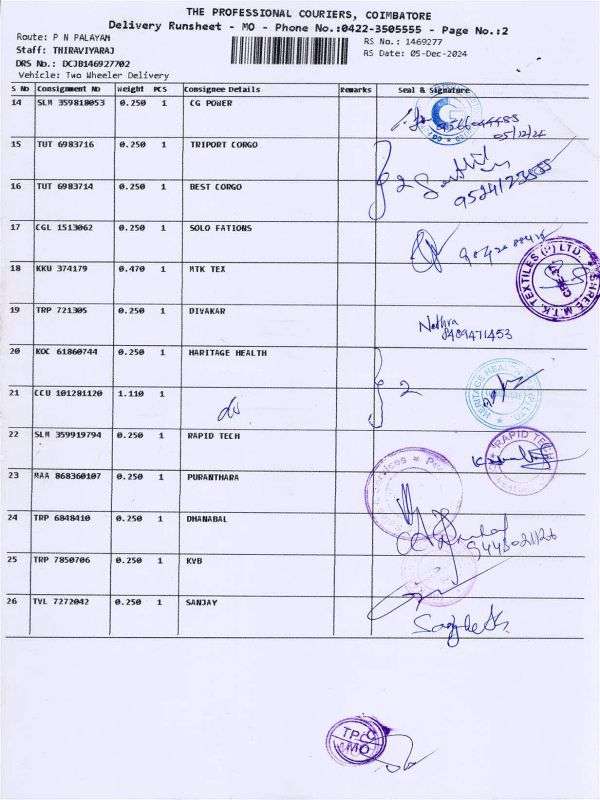 THE PROFESSIONAL COURIERS, COIMBATORE
Delivery Runsheet - MO - Phone No.:0422-3505555 - Page No.:2
Route: P N PALAYAM
RS No.: 1469277
Staff: THIRAVIYARAJ
RS Date: 05-Dec-2024
DRS No.: DCJB146927702
Vehicle: Two Wheeler Delivery
S No Consignment No Weight PCS Consignee Details Remarks Seal & Signature
14 SLM 359818053 0.250 1 CG POWER
05/12/24
15 TUT 6983716 0.250 1 TRIPORT CORGO
16 TUT 6983714 0.250 1 BEST CORGO
2
17 CGL 1513062 0.250 1 SOLO FATIONS
18 KKU 374179 0.470 1 MTK TEX
SHREE M.T.K. TEXTILES (P) LTD.
CBE
19 TRP 721305 0.250 1 DIVAKAR
Nethra
8489471453
20 KOC 61860744 0.250 1 HARITAGE HEALTH
21 CCU 101281120 1.110 1 do
2
22 SLM 359919794 0.250 1 RAPID TECH
RAPID TECH
23 MAA 868360107 0.250 1 PURANTHARA
24 TRP 6848410 0.250 1 DHANABAL
25 TRP 7850706 0.250 1 KVB
26 TVL 7272042 0.250 1 SANJAY
TPC
MMO